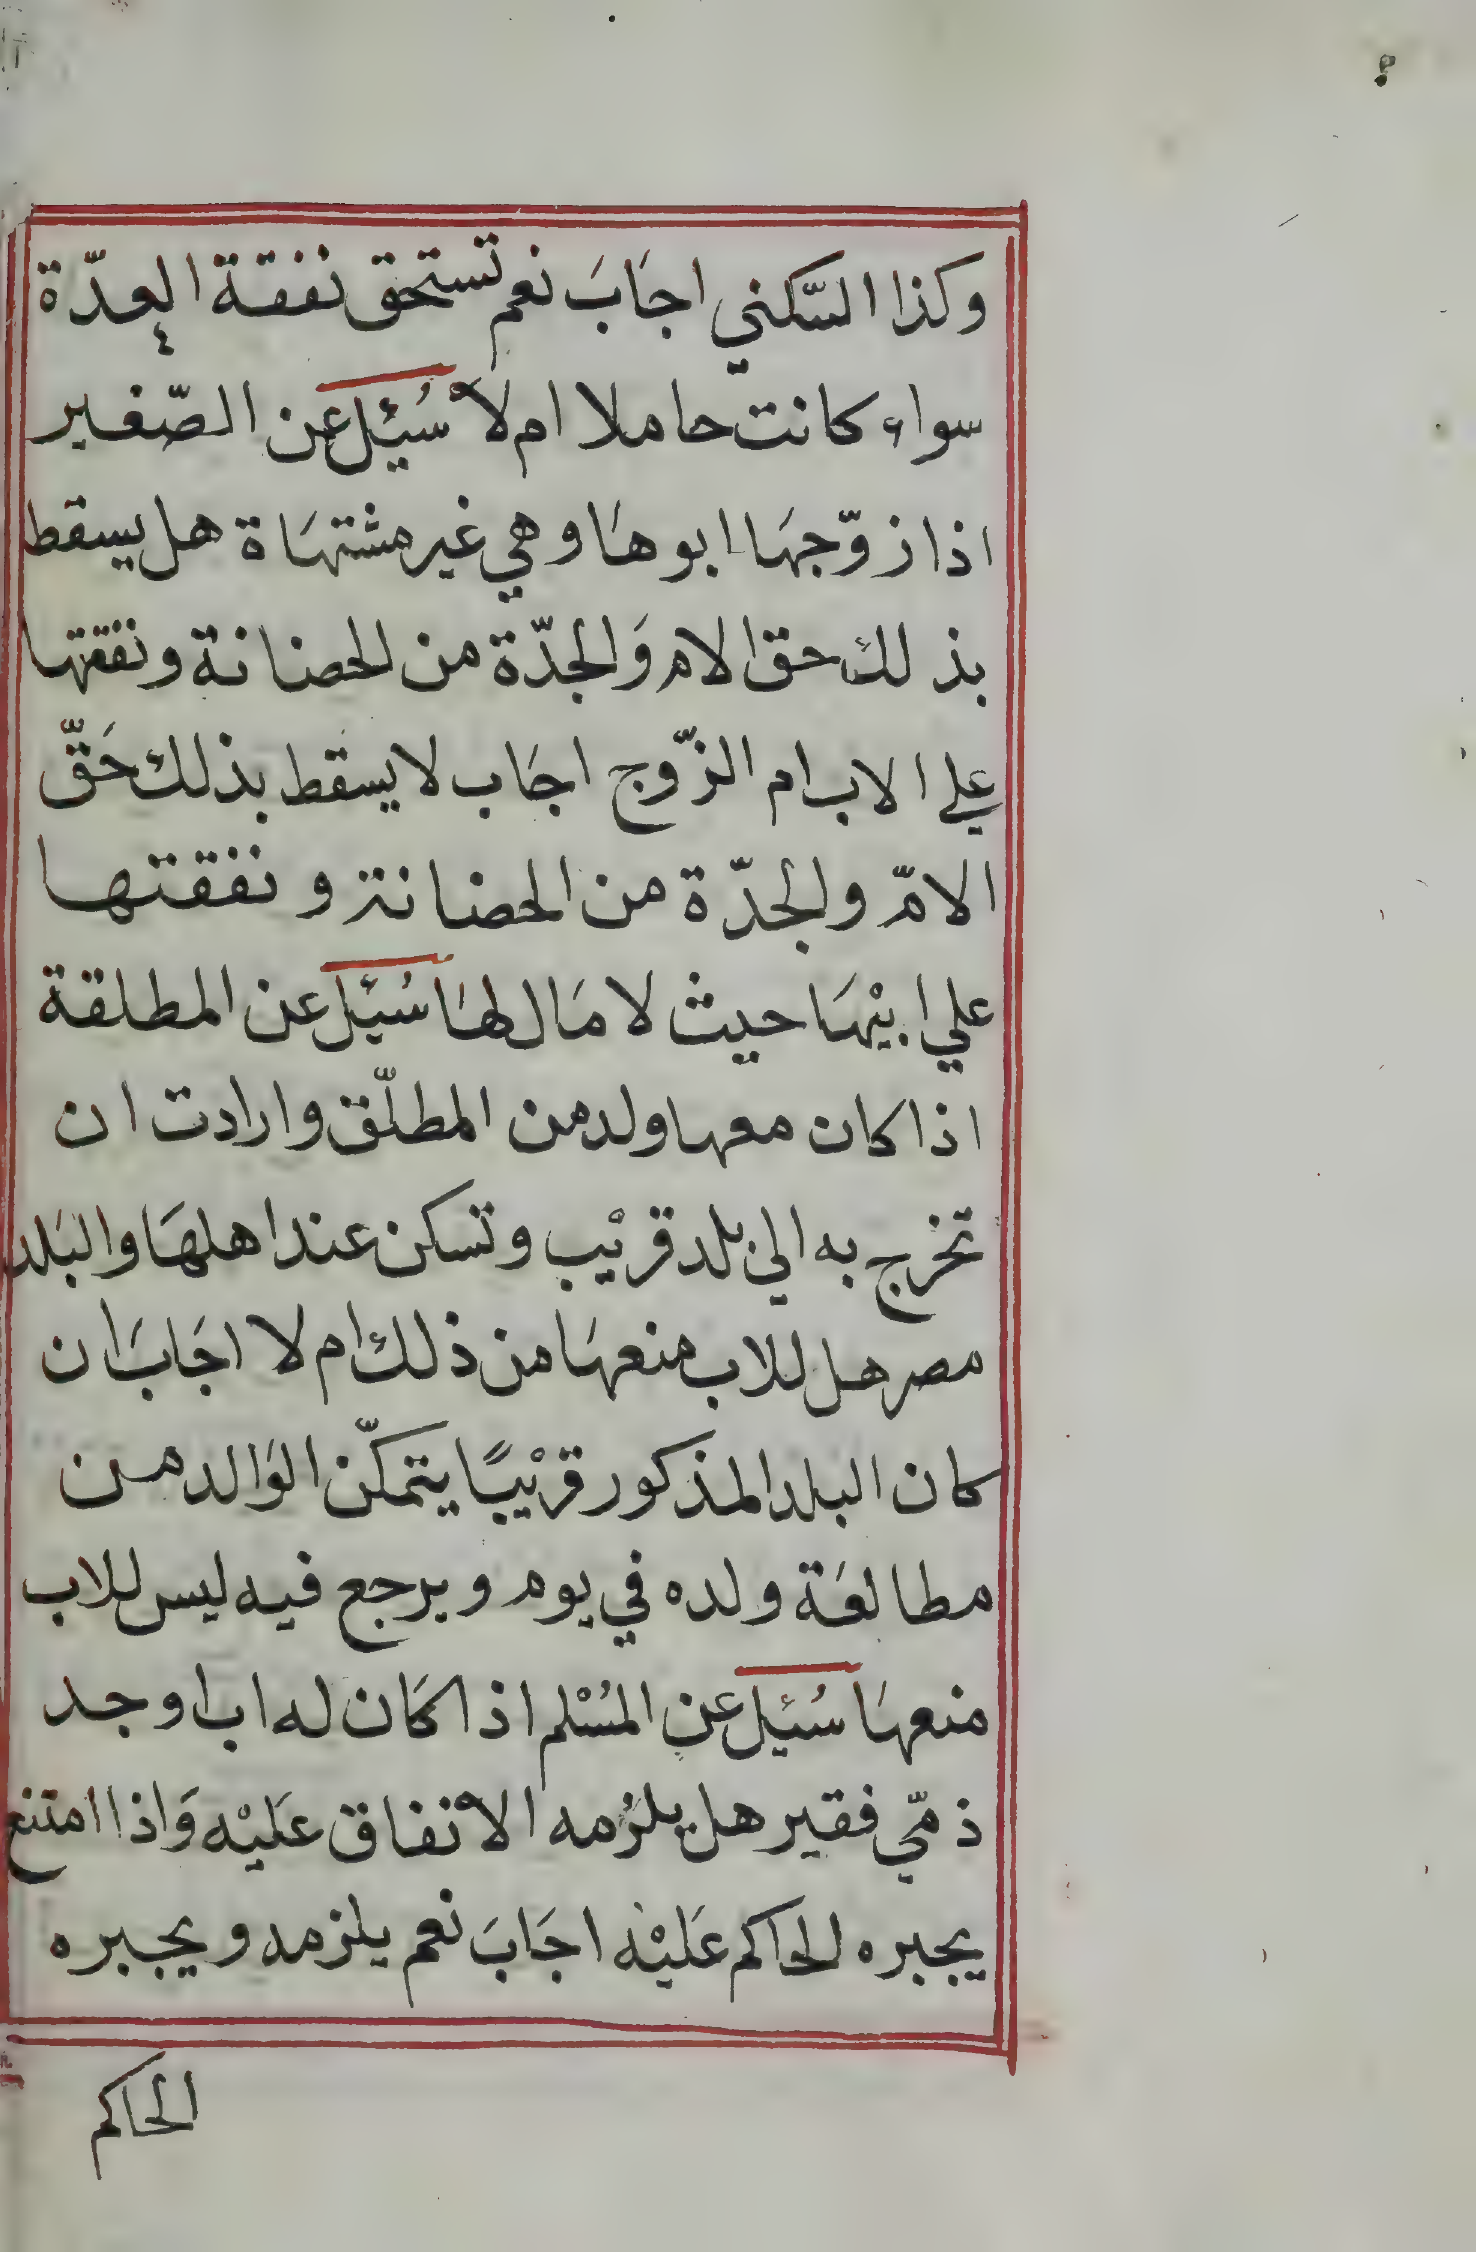 وكذا السّكني اجَابَ نعم تستحق نفقة العدّة
سواء كانت حاملا ام لا سُئِل عن الصّغير
اذا زوّجهَا ابوهَا وهي غير مشتهَاة هل يسقط
بذلك حق الام وَالجدّة من الحضانة ونفقتها
علي الاب ام الزّوج اجَاب لا يسقط بذلك حَقّ
الامّ والجدّة من الحضانة ونفقتها
علي ابيْهَا حيث لا مَال لهَا سُئِل عن المطلقة
اذا كان معها ولد من المطلّق وارادت ان
تخرج به الي بلد قريْب وتسكن عند اهلهَا والبَلد
مصر هل للاب منعهَا من ذلك ام لا اجَابَ ان
كان البلد المذكور قريْبًا يتمكّن الوَالد من
مطالعَة ولده في يوم ويرجع فيه ليس للاب
منعهَا سُئِل عن المُسْلم اذا كَان له اب او جد
ذمّي فقير هل يلزمه الأنفاق عَليْه وَاذا امتنع
يجبره الحاكم عَليْه اجَابَ نعم يلزمه ويجبره
الحاكم